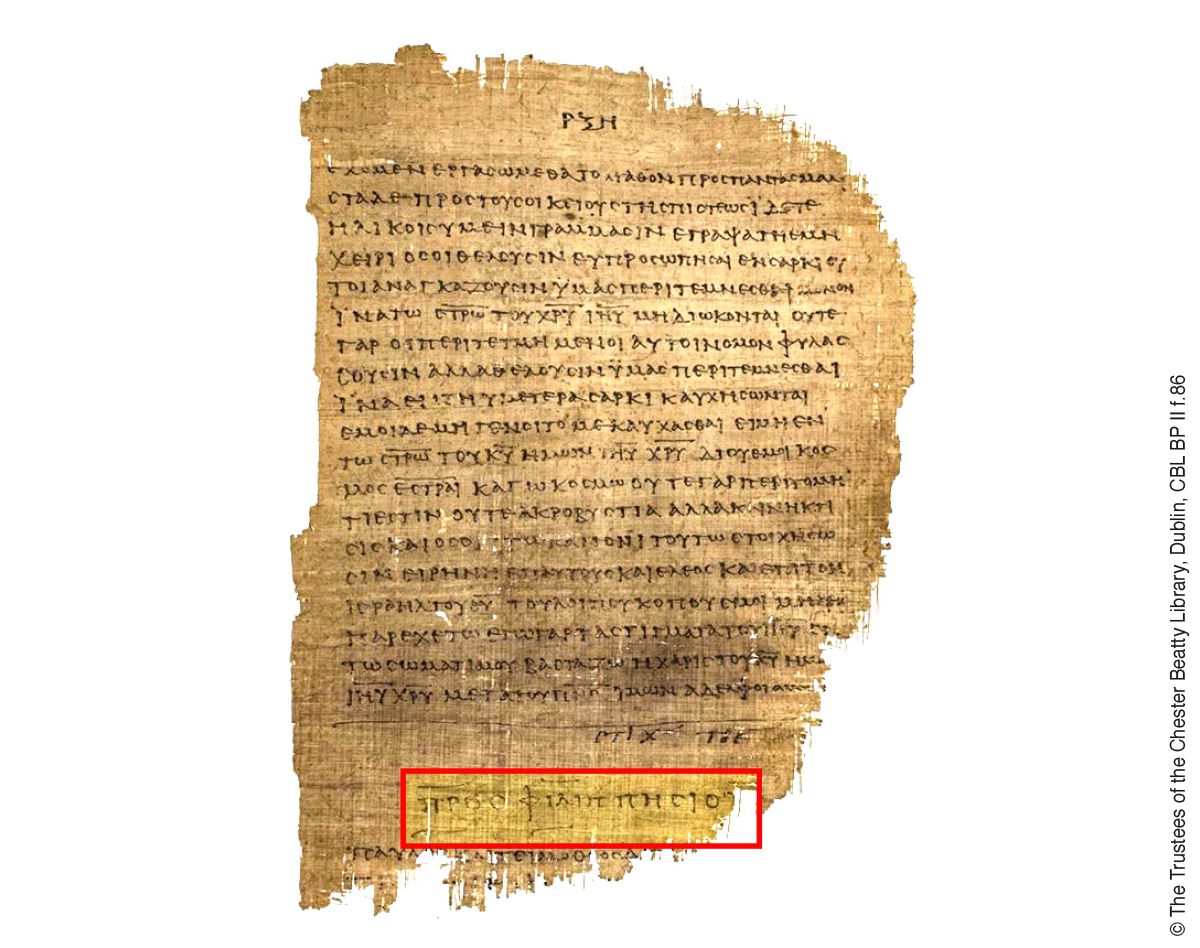 ΡΞΗ
ΕΧΟΜΕΝ ΕΡΓΑϹΩΜΕΘΑ ΤΟ ΑΓΑΘΟΝ ΠΡΟϹ ΠΑΝΤΑϹ ΜΑΛΙ
ϹΤΑ ΔΕ ΠΡΟϹ ΤΟΥϹ ΟΙΚΕΙΟΥϹ ΤΗϹ ΠΙϹΤΕΩϹ ΪΔΕΤΕ
ΗΛΙΚΟΙϹ ΥΜΕΙΝ ΓΡΑΜΜΑϹΙΝ ΕΓΡΑΨΑ ΤΗ ΕΜΗ
ΧΕΙΡΙ ΟϹΟΙ ΘΕΛΟΥϹΙΝ ΕΥΠΡΟϹΩΠΗϹΑΙ ΕΝ ϹΑΡΚΙ ΟΥ
ΤΟΙ ΑΝΑΓΚΑΖΟΥϹΙΝ ΫΜΑϹ ΠΕΡΙΤΕΜΝΕϹΘΑΙ ΜΟΝΟΝ
ΪΝΑ ΤΩ Ϲ̅Τ̅Ρ̅Ω̅ ΤΟΥ Χ̅Ρ̅Υ̅ Ι̅Η̅Υ̅ ΜΗ ΔΙΩΚΟΝΤΑΙ ΟΥΤΕ
ΓΑΡ ΟΙ ΠΕΡΙΤΕΤΜΗΜΕΝΟΙ ΑΥΤΟΙ ΝΟΜΟΝ ΦΥΛΑϹ
ϹΟΥϹΙΝ ΑΛΛΑ ΘΕΛΟΥϹΙΝ ΫΜΑϹ ΠΕΡΙΤΕΜΝΕϹΘΑΙ
ΪΝΑ ΕΝ ΤΗ ΥΜΕΤΕΡΑ ϹΑΡΚΙ ΚΑΥΧΗϹΩΝΤΑΙ
ΕΜΟΙ ΔΕ ΜΗ ΓΕΝΟΙΤΟ ΜΕ ΚΑΥΧΑϹΘΑΙ ΕΙ ΜΗ ΕΝ
ΤΩ Ϲ̅Τ̅Ρ̅Ω̅ ΤΟΥ Κ̅Υ̅ ΗΜΩΝ Ι̅Η̅Υ̅ Χ̅Ρ̅Υ̅ ΔΙ ΟΥ ΕΜΟΙ ΚΟϹ
ΜΟϹ Ε̅Ϲ̅Τ̅Ρ̅Α̅Ι̅ ΚΑΓΩ ΚΟϹΜΩ ΟΥΤΕ ΓΑΡ ΠΕΡΙΤΟΜΗ
ΤΙ ΕϹΤΙΝ ΟΥΤΕ ΑΚΡΟΒΥϹΤΙΑ ΑΛΛΑ ΚΑΙΝΗ ΚΤΙ
ϹΙϹ ΚΑΙ ΟϹΟΙ ΤΩ ΚΑΝΟΝΙ ΤΟΥΤΩ ϹΤΟΙΧΗϹΩ
ϹΙΝ ΕΙΡΗΝΗ ΕΠ ΑΥΤΟΥϹ ΚΑΙ ΕΛΕΟϹ ΚΑΙ ΕΠΙ ΤΟΝ
ΙϹΡΑΗΛ ΤΟΥ Θ̅Υ̅ ΤΟΥ ΛΟΙΠΟΥ ΚΟΠΟΥϹ ΜΟΙ ΜΗΔΕΙϹ
ΠΑΡΕΧΕΤΩ ΕΓΩ ΓΑΡ ΤΑ ϹΤΙΓΜΑΤΑ ΤΟΥ Ι̅Η̅Υ̅ ΕΝ
ΤΩ ϹΩΜΑΤΙ ΜΟΥ ΒΑϹΤΑΖΩ Η ΧΑΡΙϹ ΤΟΥ Κ̅Υ̅ ΗΜΩ
Ι̅Η̅Υ̅ Χ̅Ρ̅Υ̅ ΜΕΤΑ ΤΟΥ Π̅Ν̅Ϲ̅ ΫΜΩΝ ΑΔΕΛΦΟΙ ΑΜΗΝ
ϹΤΙΧ ΤΟΕ
ΠΡΟϹ ΦΙΛΙΠΠΗϹΙΟΥ
ΠΑΥΛ ΤΕΙΜΟΘΟϹ
© The Trustees of the Chester Beatty Library, Dublin, CBL BP II f.86